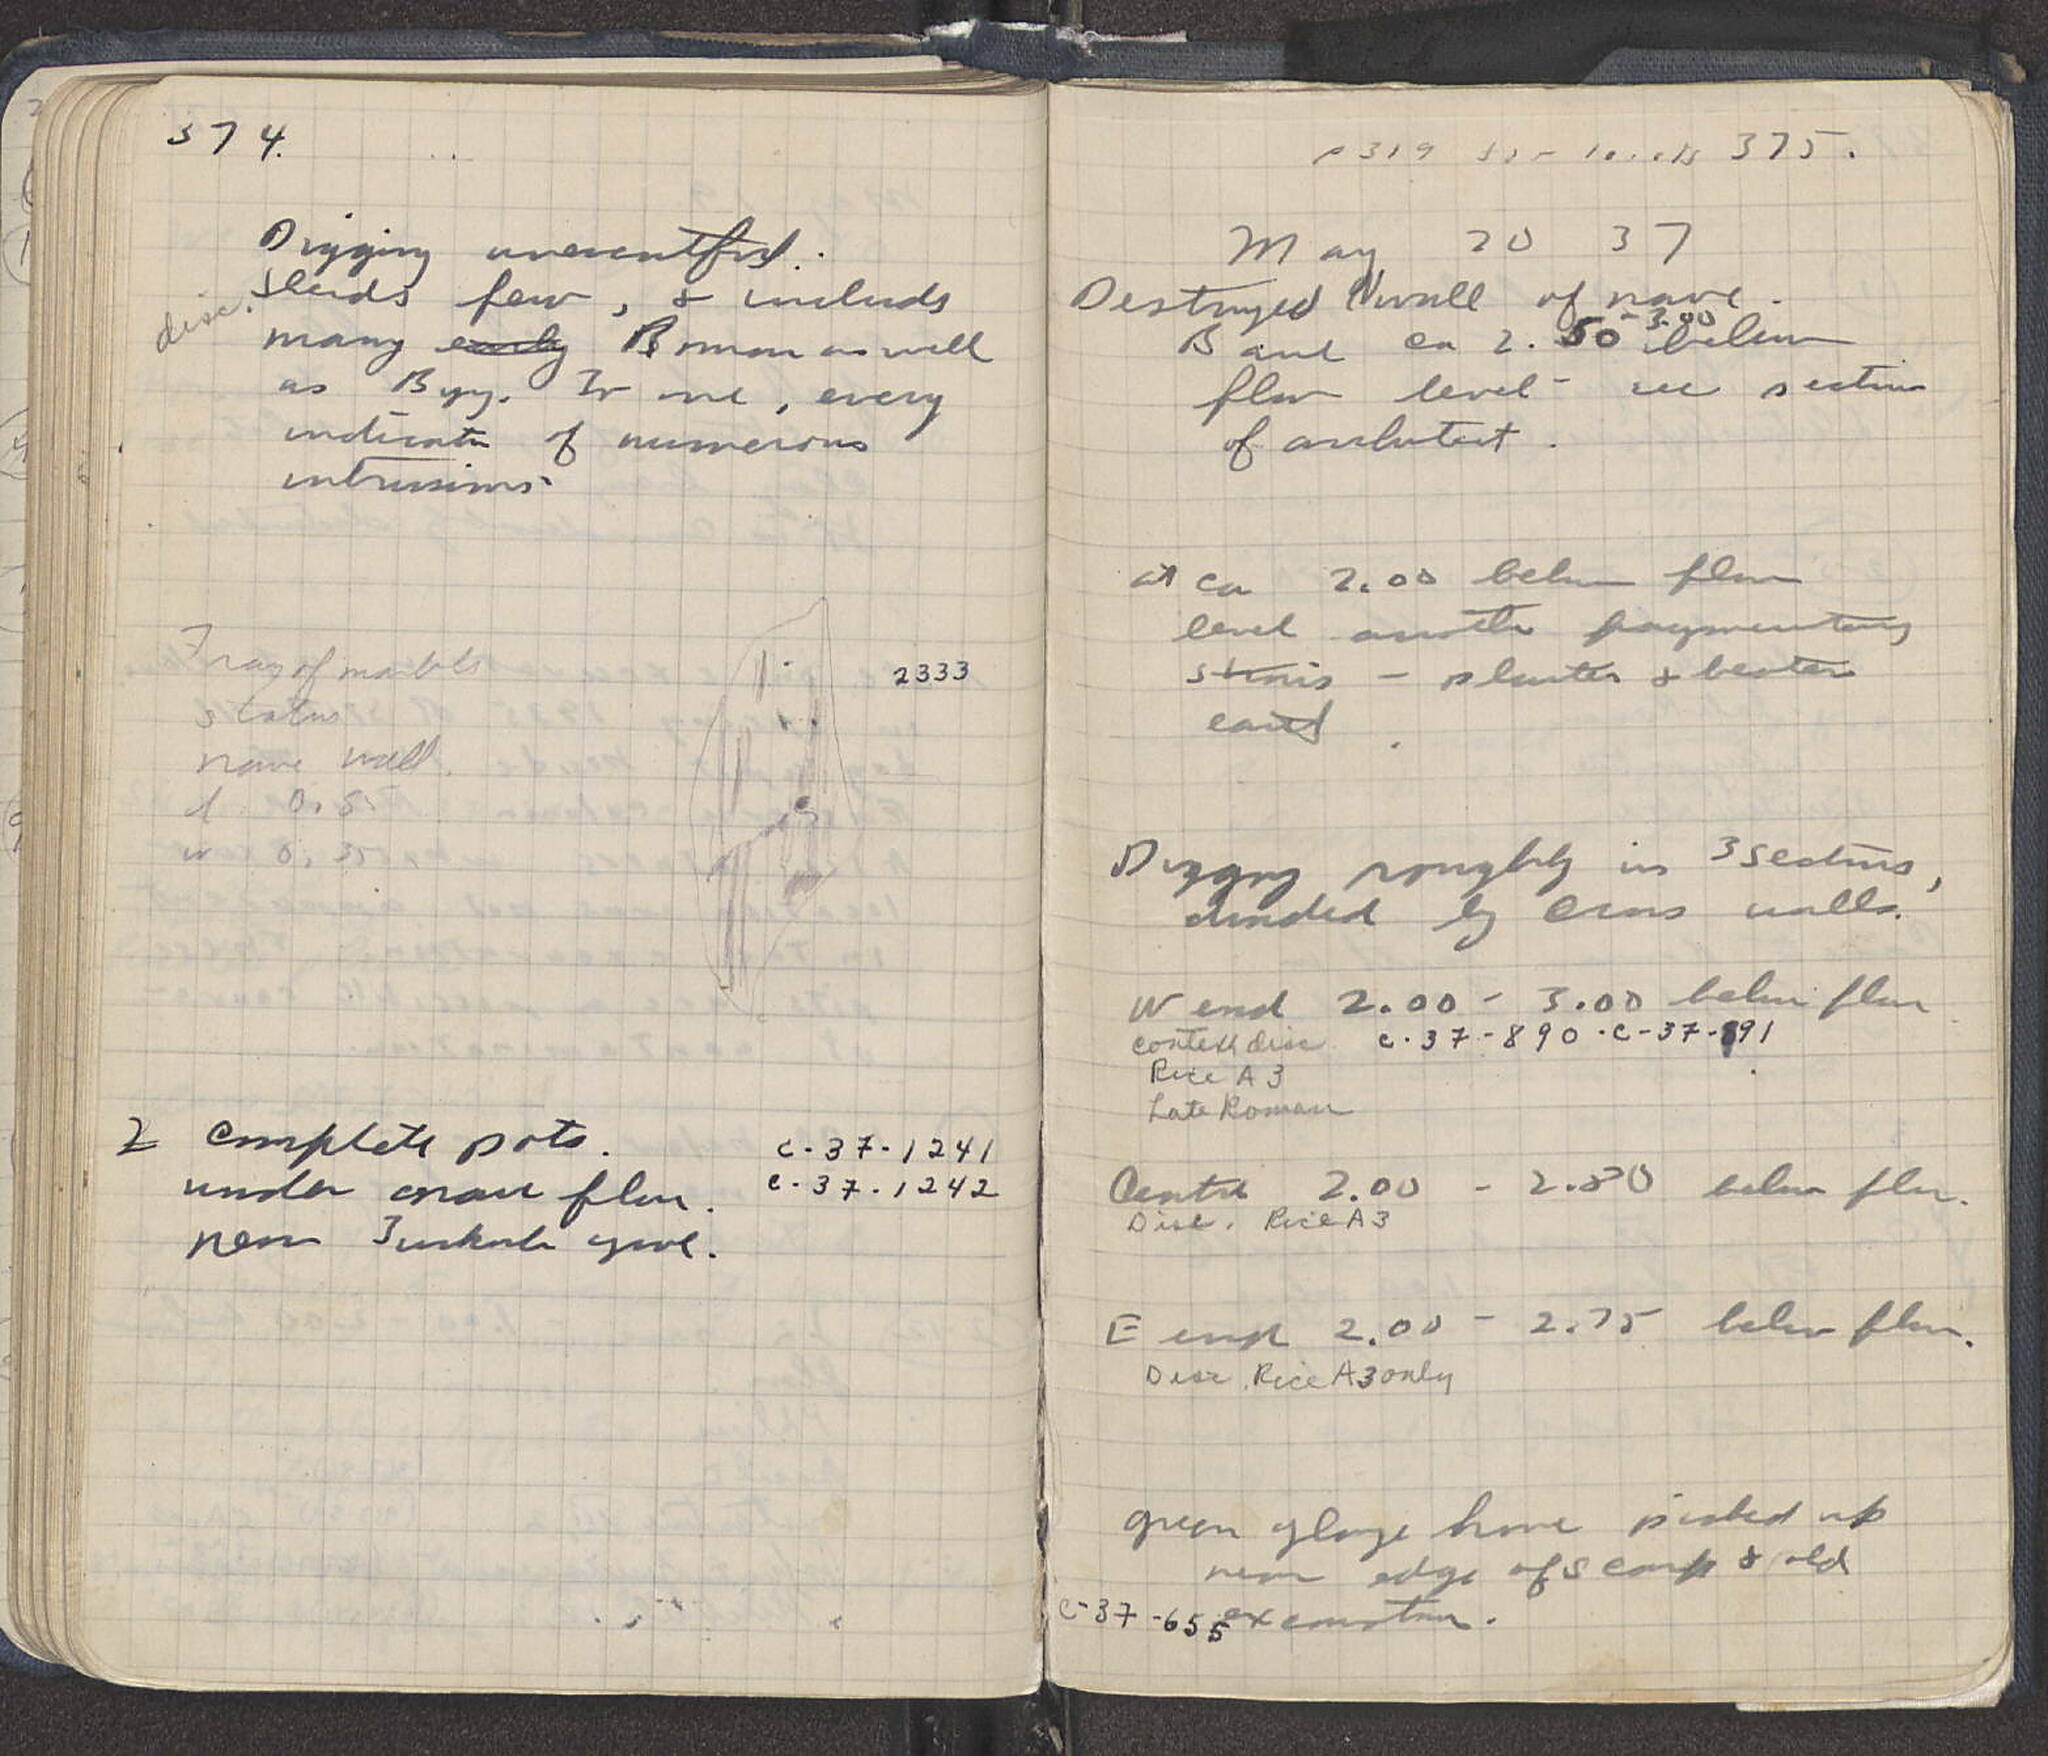 374.
Digging uneventful.
disc.
Sherds few, & includs
many early Roman as well
as Byz. In one, every
indicatn of numerous
intrusions.
Frag of marble
2333
statue
nave wall.
l. 0.55
w 0.35
2 complete pots.
c-37-1241
under nave floor.
c-37-1242
near Turkish grave.
p 319 for levels 375.
May 20 37
Destroyed N wall of nave.
Band ca 2.50-3.00 below
floor level - see section
of architect.
at ca 2.00 below floor
level another fragmentary
- plaster & beaten
earth.
Digging roughly in 3 sections,
divided by cross walls.
W end 2.00 - 3.00 below floor
context disc c-37-890 · c-37-891
Rice A3
Late Roman
Centre 2.00 - 2.80 below floor.
Disc. Rice A3
E end 2.00 - 2.75 below floor.
Disc. Rice A3 only
green glaze picked up
near edge of scarp & old
c-37-655 excavation.